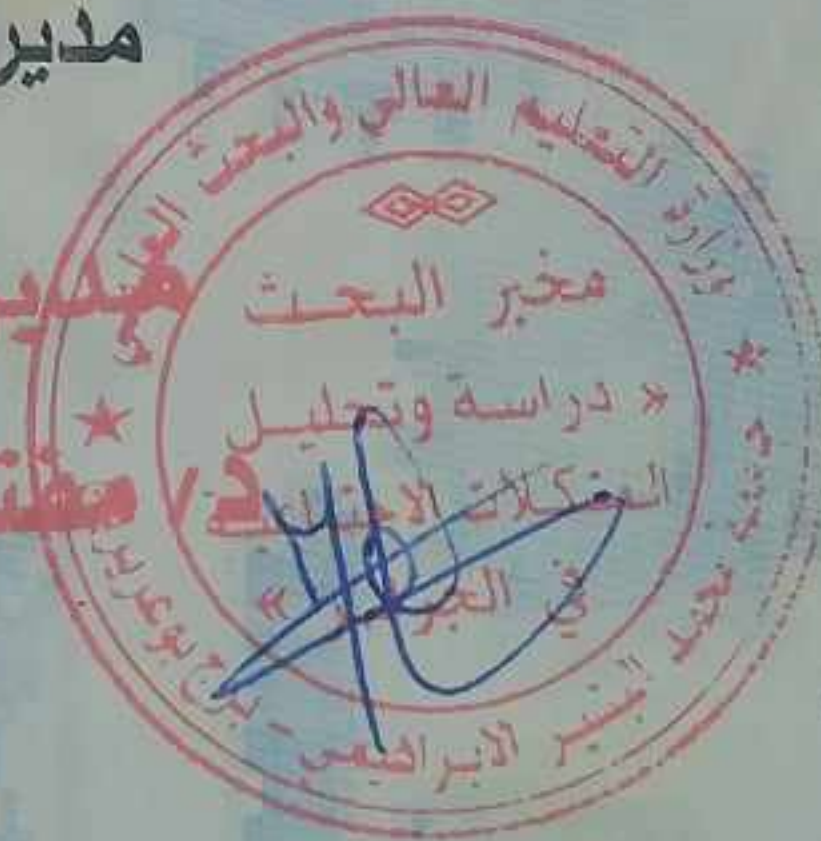 مدير
وزارة التعليم العالي والبحث العلمي
مخبر البحث
« دراسة وتحليل
المشكلات الاجتماعية
في الجزائر »
مدير
د/
جامعة محمد البشير الابراهيمي - برج بوعريريج